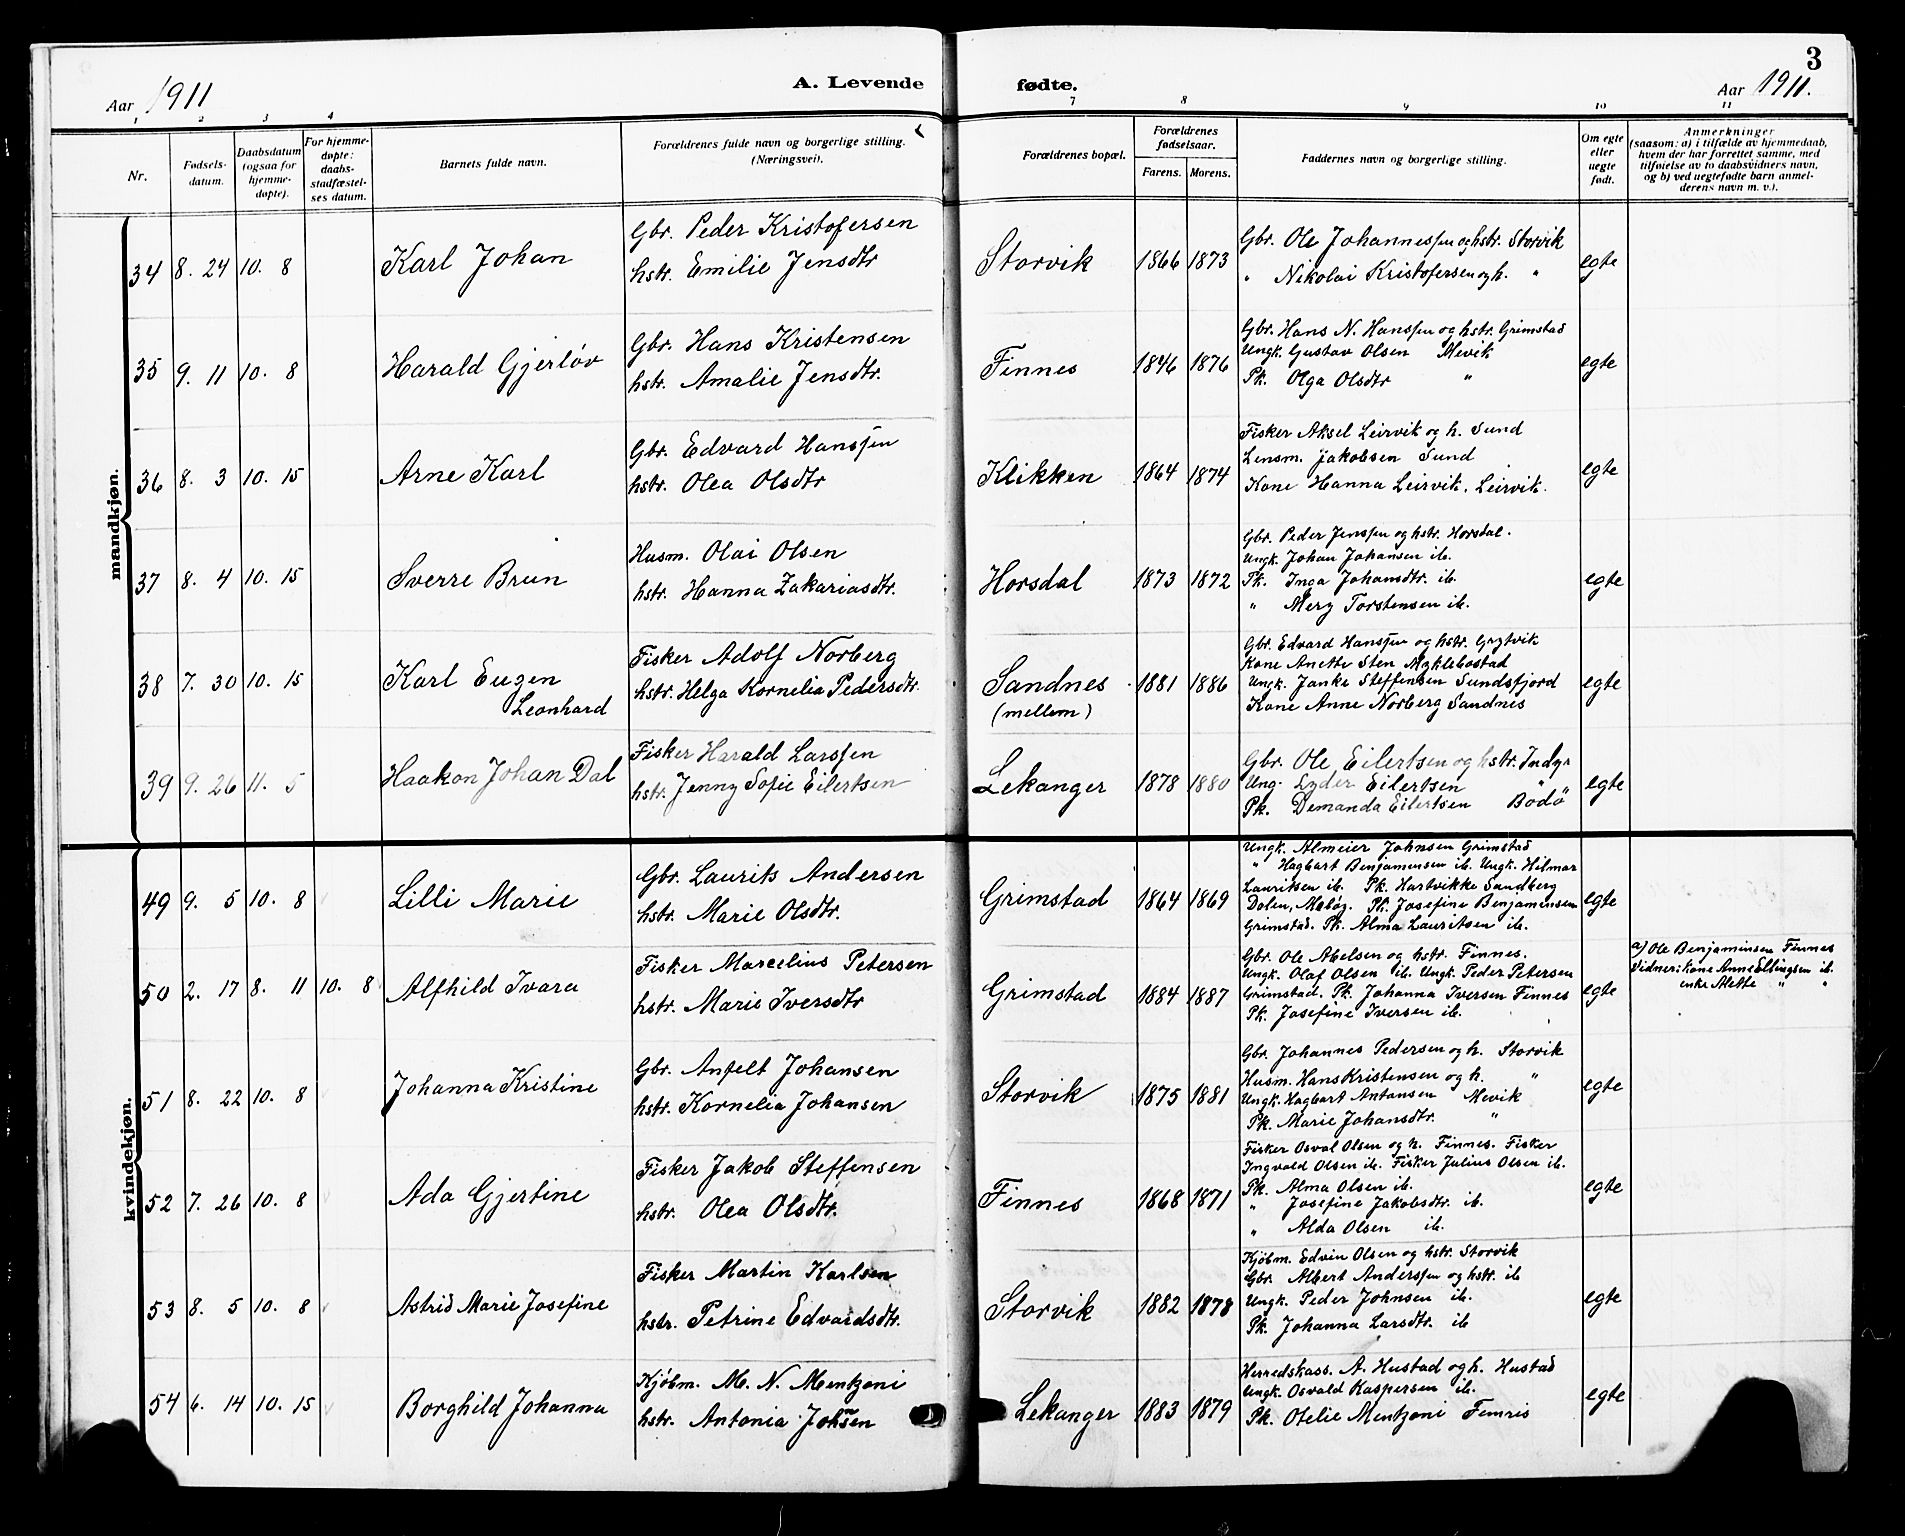 3
Aar 1911
A. Levende fødte.
Aar 1911.
1 2 3 4 7 8 9 10 11
Nr.
Fødsels-
datum.
Daabsdatum
(ogsaa for
hjemme-
døpte).
For hjemme-
døpte:
daabs-
stadfæstel-
ses datum.
Barnets fulde navn.
Forældrenes fulde navn og borgerlige stilling.
(Næringsvei).
Forældrenes bopæl.
Forældrenes
fødselsaar.
Farens. Morens.
Faddernes navn og borgerlige stilling.
Om egte
eller
uegte
født.
Anmerkninger
(saasom: a) i tilfælde av hjemmedaab,
hvem der har forrettet samme, med
tilføielse av to daabsvidners navn,
og b) ved uegtefødte barn anmel-
derens navn m. v.).
mandkjøn.
34 8. 24 10. 8 Karl Johan
Gbr. Peder Kristofersen
hstr. Emilie Jensdtr
Storvik 1866 1873
Gbr. Ole Johannessen og hstr. Storvik
" Nikolai Kristofersen og h. "
egte
35 9. 11 10. 8 Harald Gjerløv
Gbr. Hans Kristensen
hstr. Amalie Jensdtr.
Finnes 1846 1876
Gbr. Hans N. Hanssen og hstr. Grimstad
Ungk. Gustav Olsen Mevik
Pk. Olga Olsdtr "
egte
36 8. 3 10. 15 Arne Karl
Gbr. Edvard Hanssen
hstr. Olea Olsdtr
Klikken 1864 1874
Fisker Aksel Leirvik og h. Sund
Lensm. Jakobsen Sund
Kone Hanna Leirvik. Leirvik.
egte
37 8. 4 10. 15 Sverre Brun
Husm. Olai Olsen
hstr. Hanna Zakariasdtr.
Horsdal 1873 1872
Gbr. Peder Jenssen og hstr. Horsdal.
Ungk. Johan Johansen ib.
Pk. Inga Johansdtr. ib.
" Mery Torstensen ib.
egte
38 7. 30 10. 15 Karl Eugen
Leonhard
Fisker Adolf Norberg
hstr. Helga Kornelia Pedersdtr.
Sandnes
(mellem)
1881 1886
Gbr. Edvard Hanssen og hstr. Grytvik
Kone Anette Sten Myklebostad
Ungk. Janke Steffensen Sundsfjord
Kone Anne Norberg Sandnes
egte
39 9. 26 11. 5 Haakon Johan Dal
Fisker Harald Larssen
hstr. Jenny Sofie Eilertsen
Lekanger 1878 1880
Gbr. Ole Eilertsen og hstr. Indyr
Ung. Lyder Eilertsen "
Pk. Demanda Eilertsen Bodø
egte
kvindekjøn.
49 9. 5 10. 8 Lilli Marie
Gbr. Laurits Andersen
hstr. Marie Olsdtr.
Grimstad 1864 1869
Ungk. Almeier Johnsen Grimstad
" Hagbart Benjamensen ib. Ungk. Hilmar
Lauritsen ib. Pk. Hartvikke Sandberg
Dolen, Meløy. Pk. Josefine Benjamensen
Grimstad. Pk. Alma Lauritsen ib.
egte
50 2. 17 8. 11 10. 8 Alfhild Ivara
Fisker Marcelius Petersen
hstr. Marie Iversdtr
Grimstad 1884 1887
Gbr. Ole Abelsen og hstr. Finnes.
Ungk. Olaf Olsen ib. Ungk. Peder Petersen
Grimstad. Pk. Johanna Iversen Finnes
Pk. Josefine Iversen ib.
egte
a) Ole Benjaminsen Finnes
Vidner: kone Anne Ellingsen ib.
enke Alette " "
51 8. 22 10. 8 Johanna Kristine
Gbr. Anfelt Johansen
hstr. Kornelia Johansen
Storvik 1875 1881
Gbr. Johannes Pedersen og h. Storvik
Husm. Hans Kristensen og h. "
Ungk. Hagbart Antonsen Mevik
Pk. Marie Johansdtr. "
egte
52 7. 26 10. 8 Ada Gjertine
Fisker Jakob Steffensen
hstr. Olea Olsdtr.
Finnes 1868 1871
Fisker Osval Olsen og h. Finnes. Fisker
Ingvald Olsen ib. Fisker Julius Olsen ib.
Pk. Alma Olsen ib.
" Josefine Jakobsdtr. ib.
" Alda Olsen ib.
egte
53 8. 5 10. 8 Astrid Marie Josefine
Fisker Martin Karlsen
hstr. Petrine Edvardsdtr.
Storvik 1882 1878
Kjøbm. Edvin Olsen og hstr. Storvik
Gbr. Albert Anderssen og hstr. ib
Ungk. Peder Johnsen ib.
Pk. Johanna Larsdtr. ib
egte
54 6. 14 10. 15 Borghild Johanna
Kjøbm. M. N. Mentzoni
hstr. Antonia Johnsen
Lekanger 1883 1879
Herredskass. A. Hustad og h. Hustad
Ungk. Osvald Kaspersen ib.
Pk. Otelie Mentzoni Femris
egte